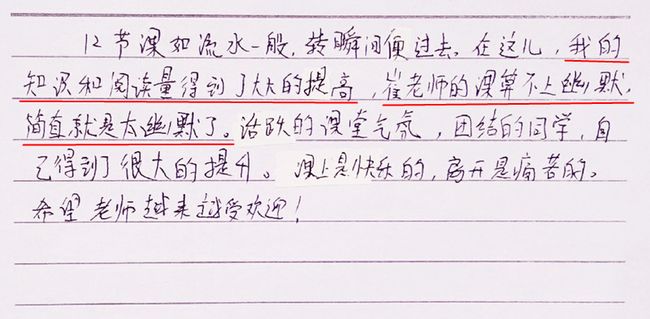 12节课如流水一般,转瞬间便过去。在这儿,我的
知识和阅读量得到了大大的提高,崔老师的课算不上幽默,
简直就是太幽默了。活跃的课堂气氛,团结的同学,自
己得到了很大的提升。课上是快乐的,离开是痛苦的。
希望老师越来越受欢迎!